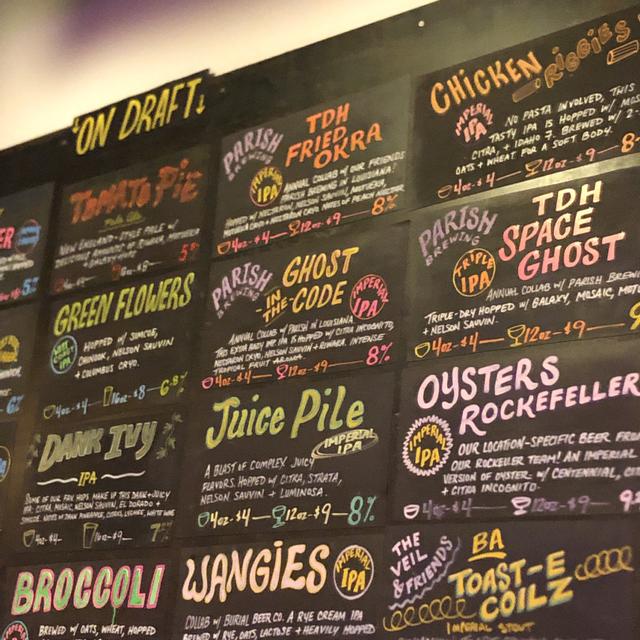 ON DRAFT
TOMATO PIE
PALE ALE
NEW ENGLAND-STYLE PALE W/
5.
GREEN FLOWERS
HOPPED W/ SIMCOE,
CHINOOK, NELSON SAUVIN
+ COLUMBUS CRYO.
4oz-$4 16oz-$8 6.8%
DANK IVY
IPA
SOME OF OUR FAV HOPS MAKE UP THIS DANK + JUICY
IPA: CITRA, MOSAIC, NELSON SAUVIN, EL DORADO +
SIMCOE. NOTES OF DANK PINEAPPLE, CITRUS, LYCHEE, WHITE WINE
4oz-$4 $9 7
BROCCOLI
BREWED W/ OATS, WHEAT, HOPPED
PARISH
BREWING
TDH
FRIED
OKRA
IMPERIAL
IPA
ANNUAL COLLAB W/ OUR FRIENDS
PARISH BREWING IN LOUISIANA!
HOPPED W/ NECTARON, NELSON SAUVIN,
NECTARON CRYO. NOTES OF PEACH NECTAR
4oz-$4 12oz-$9 8%
PARISH
BREWING
GHOST
-IN THE-
CODE
IMPERIAL
IPA
ANNUAL COLLAB W/ PARISH IN LOUISIANA
THIS EXTRA HOPPY IPA IS HOPPED W/ CITRA INCOGNITO,
NECTARON CRYO, NELSON SAUVIN + RIWAKA. INTENSE
TROPICAL FRUIT
4oz-$4 12oz-$9 8%
Juice Pile
IMPERIAL
IPA
A BLAST OF COMPLEX JUICY
FLAVORS. HOPPED W/ CITRA, STRATA,
NELSON SAUVIN + LUMINOSA.
4oz-$4 12oz-$9 8%
WANGIES
IMPERIAL
IPA
COLLAB W/ BURIAL BEER CO. A RYE CREAM IPA
BREWED W/ RYE, OATS, LACTOSE + HEAVILY HOPPED
CHICKEN
RIGGIES
IMPERIAL
IPA
NO PASTA INVOLVED, THIS
TASTY IPA IS HOPPED W/ MOS
CITRA, + IDAHO 7. BREWED W/ 2-
OATS + WHEAT FOR A SOFT BODY.
4oz-$4 12oz-$9 8
PARISH
BREWING
TDH
SPACE
GHOST
TRIPLE
IPA
ANNUAL COLLAB W/ PARISH BREW
TRIPLE-DRY HOPPED W/ GALAXY, MOSAIC, MOTU
+ NELSON SAUVIN.
4oz-$4 12oz-$9 9
OYSTERS
ROCKEFELLER
IMPERIAL
IPA
OUR LOCATION-SPECIFIC BEER FR
OUR ROCKELLER TEAM! AN IMPERIAL
VERSION OF OYSTER W/ CENTENNIAL, C
+ CITRA INCOGNITO.
4oz-$4 12oz-$9 9
THE
VEIL
& FRIENDS
BA
TOAST-E
COILZ
IMPERIAL STOUT